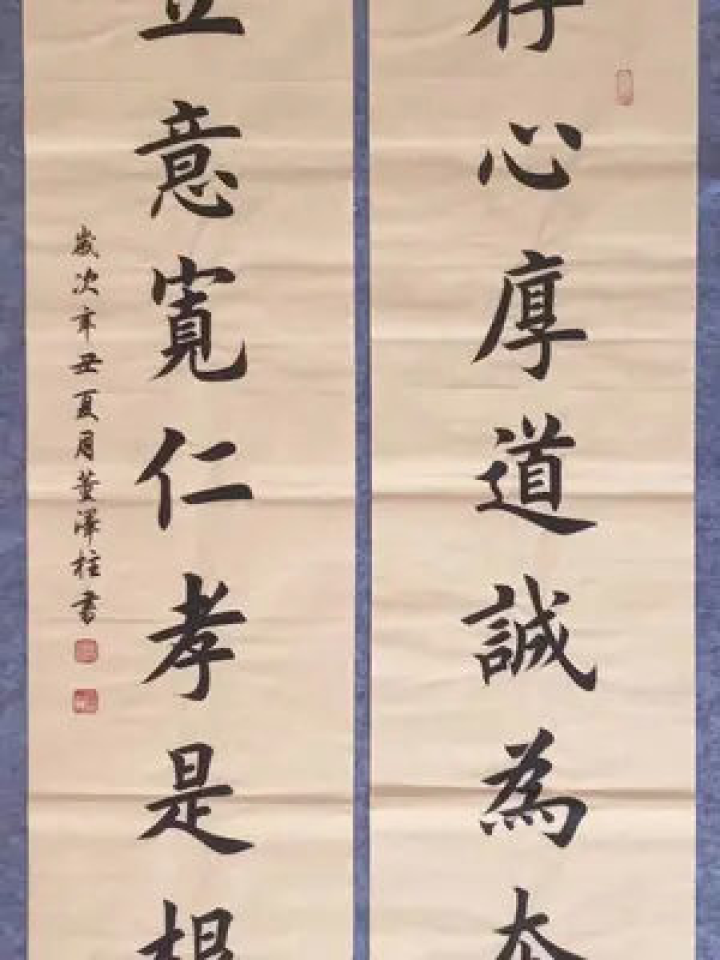 存心厚道誠為本
立意寬仁孝是根
歲次辛丑夏月董澤柱書